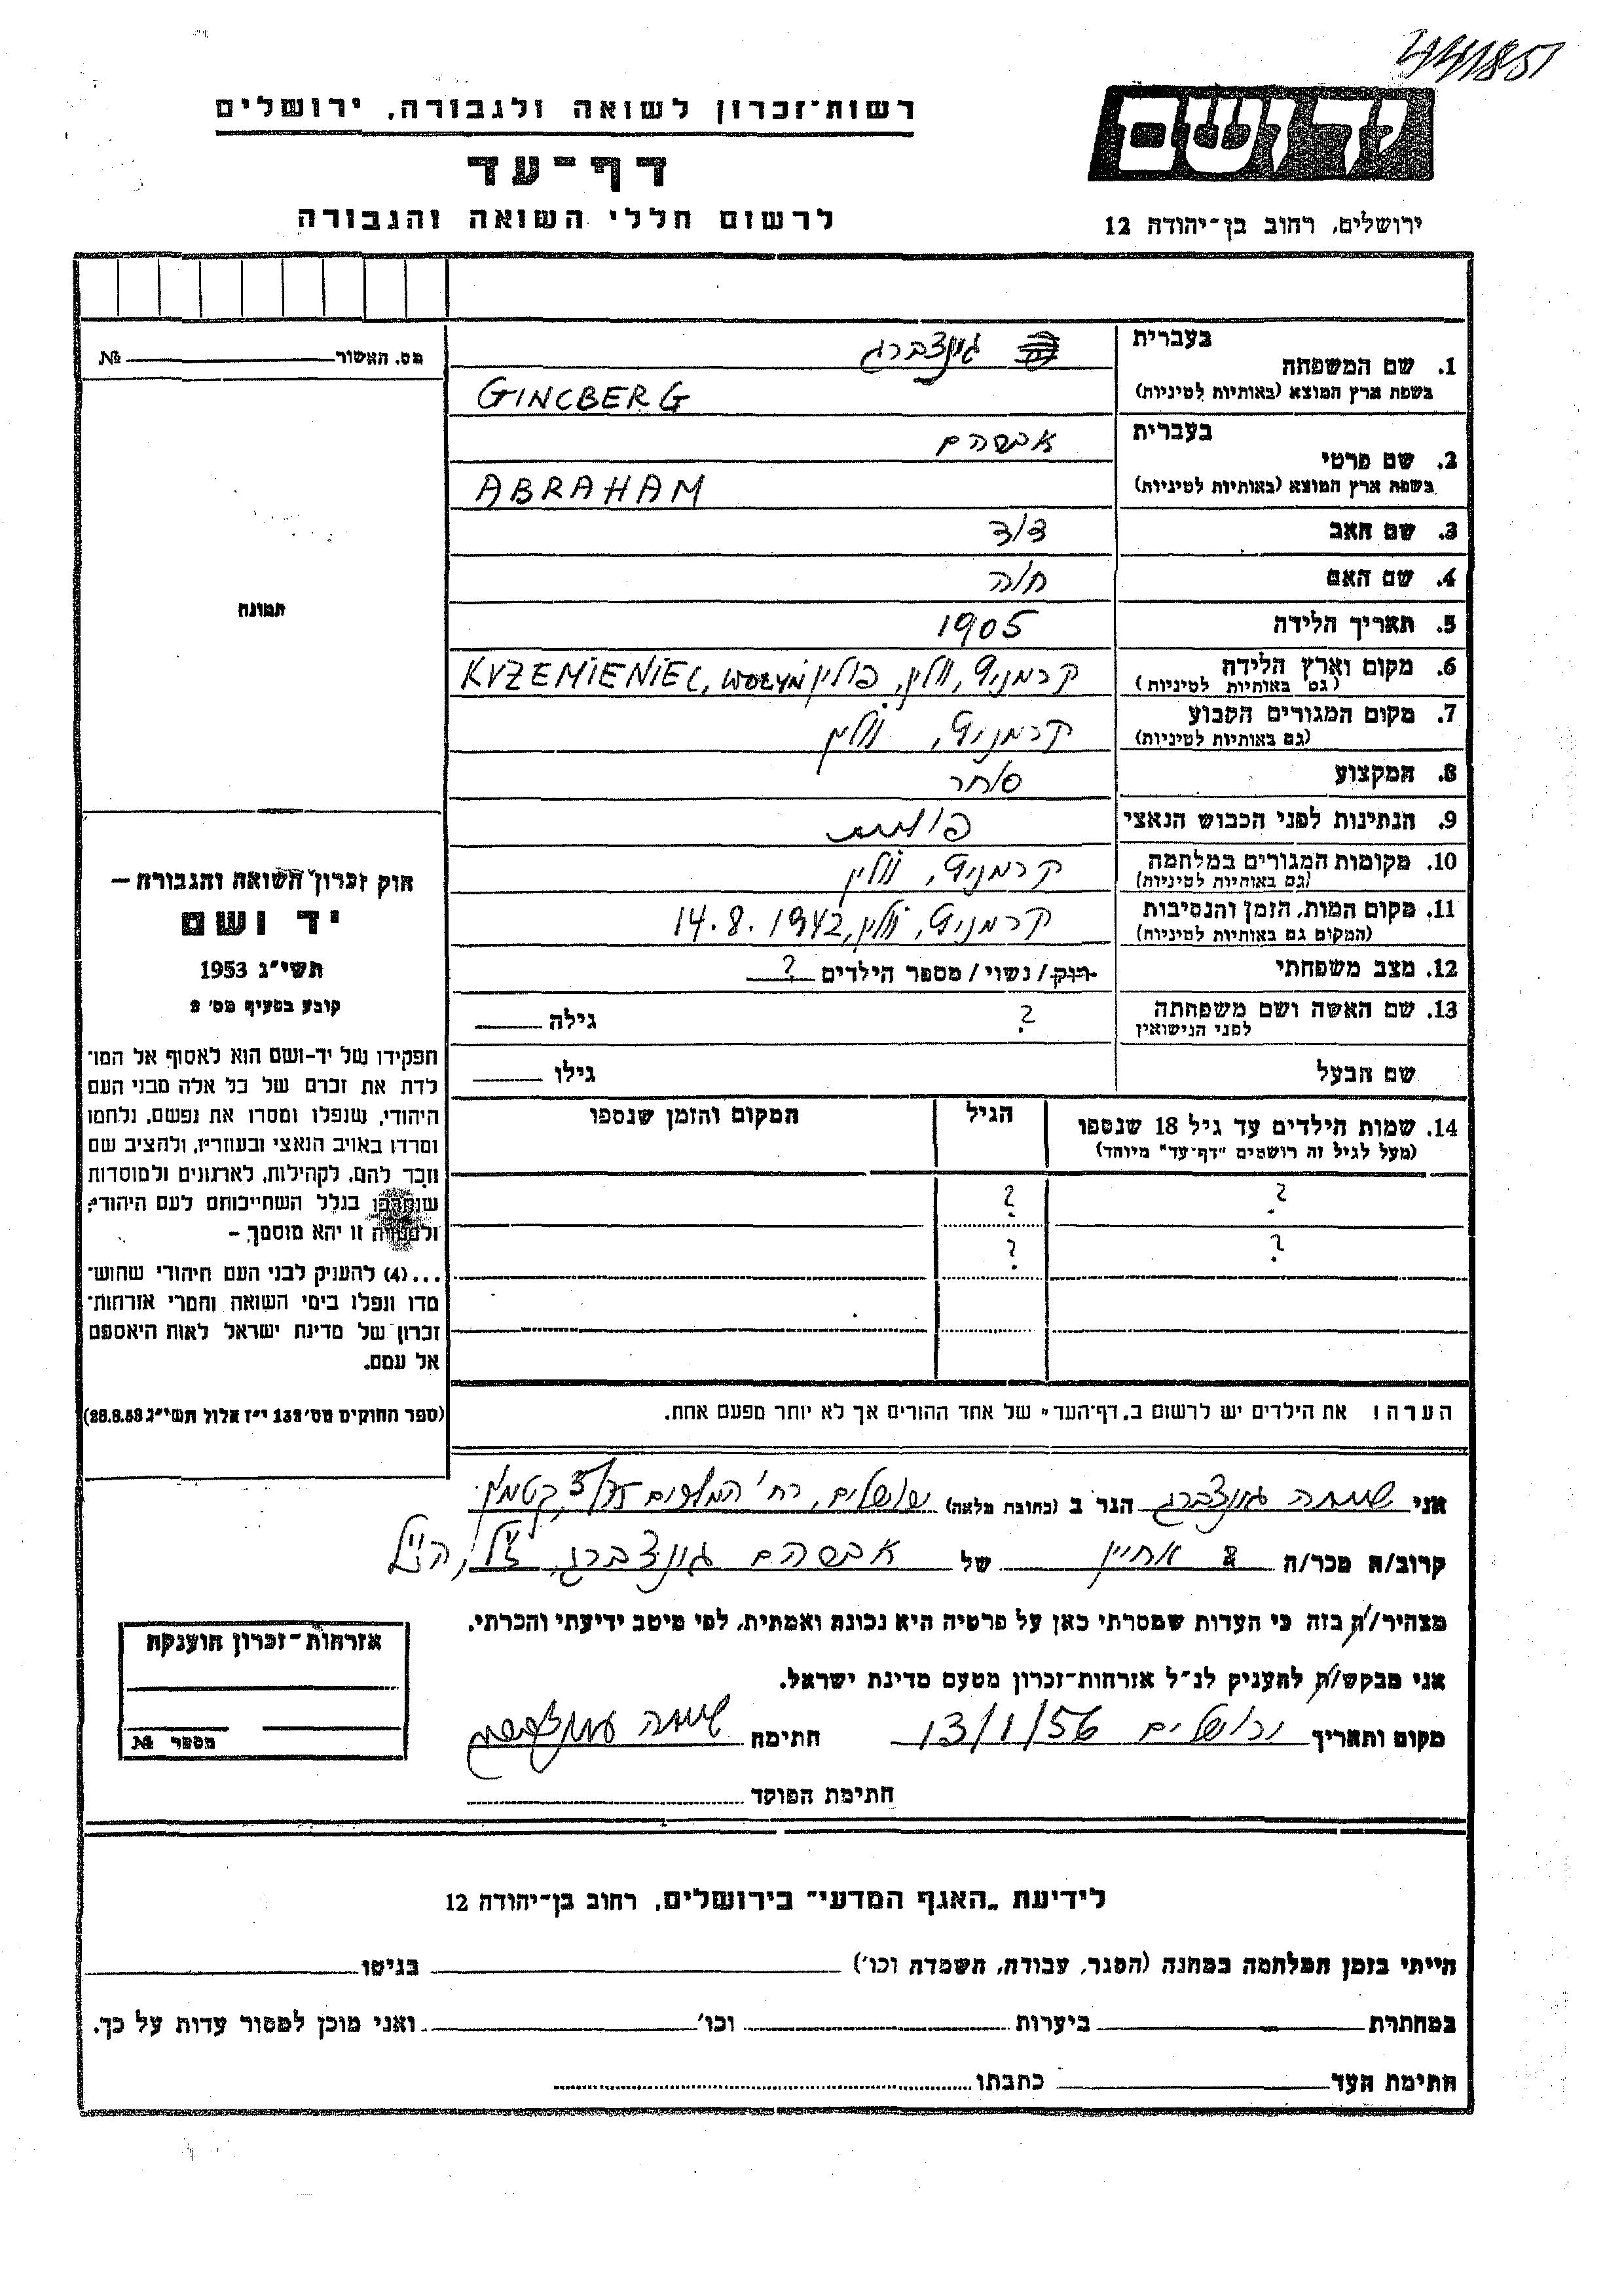 441851
רשות־זכרון לשואה ולגבורה, ירושלים
יד ושם
דף־עד
לרשום חללי השואה והגבורה
ירושלים, רחוב בן־יהודה 12
מס. האשור № 
בעברית גינצברג
1. שם המשפחה
בשפת ארץ המוצא (באותיות לטיניות) GINCBERG
בעברית אברהם
2. שם פרטי
בשפת ארץ המוצא (באותיות לטיניות) ABRAHAM
3. שם האב דוד
4. שם האם חוה
5. תאריך הלידה 1905
6. מקום וארץ הלידה קרמניץ, ווהלין, פולין KRZEMIENIEC, WOŁYŃ
(גם באותיות לטיניות)
7. מקום המגורים הקבוע קרמניץ, ווהלין
(גם באותיות לטיניות)
8. המקצוע סוחר
9. הנתינות לפני הכבוש הנאצי פולנית
10. מקומות המגורים במלחמה קרמניץ, ווהלין
(גם באותיות לטיניות)
11. מקום המות, הזמן והנסיבות קרמניץ, ווהלין, 14.8.1942
(המקום גם באותיות לטיניות)
12. מצב משפחתי רווק/נשוי/מספר הילדים ?
13. שם האשה ושם משפחתה ? גילה
לפני הנישואין
שם הבעל גילו
14. שמות הילדים עד גיל 18 שנספו הגיל המקום והזמן שנספו
(מעל לגיל זה רושמים "דף־עד" מיוחד)
? ?
? ?
הערה! את הילדים יש לרשום ב„דף־העד" של אחד ההורים אך לא יותר מפעם אחת.
תמונה
חוק זכרון השואה והגבורה —
יד ושם
תשי"ג 1953
קובע בסעיף מס' 2
תפקידו של יד־ושם הוא לאסוף אל המו־
לדת את זכרם של כל אלה מבני העם
היהודי, שנפלו ומסרו את נפשם, נלחמו
ומרדו באויב הנאצי ובעוזריו, ולהציב שם
וזכר להם, לקהילות, לארגונים ולמוסדות
שנחרבו בגלל השתייכותם לעם היהודי;
ולמטרה זו יהא מוסמך –
...(4) להעניק לבני העם היהודי שהוש־
מדו ונפלו בימי השואה והמרי אזרחות־
זכרון של מדינת ישראל לאות היאספם
אל עמם.
(ספר החוקים מס' 132 י"ז אלול תשי"ג 28.8.53)
אני שמחה גינצברג הגר ב (כתובת מלאה) ירושלים, רח' קטמון
קרוב/ה מכר/ה אחיין של אברהם גינצברג, ז"ל, הנ"ל
מצהיר/ה בזה כי העדות שמסרתי כאן על פרטיה היא נכונה ואמתית, לפי מיטב ידיעתי והכרתי.
אני מבקש/ת להעניק לנ"ל אזרחות־זכרון מטעם מדינת ישראל.
מקום ותאריך ירושלים 13/1/56 חתימה שמחה גינצברג
חתימת הפוקד
אזרחות־זכרון הוענקה
מספר №
לידיעת „האגף המדעי" בירושלים, רחוב בן־יהודה 12
הייתי בזמן המלחמה במחנה (הסגר, עבודה, השמדה וכו') בגיטו
במחתרת ביערות וכו' ואני מוכן למסור עדות על כך.
חתימת העד כתבתו